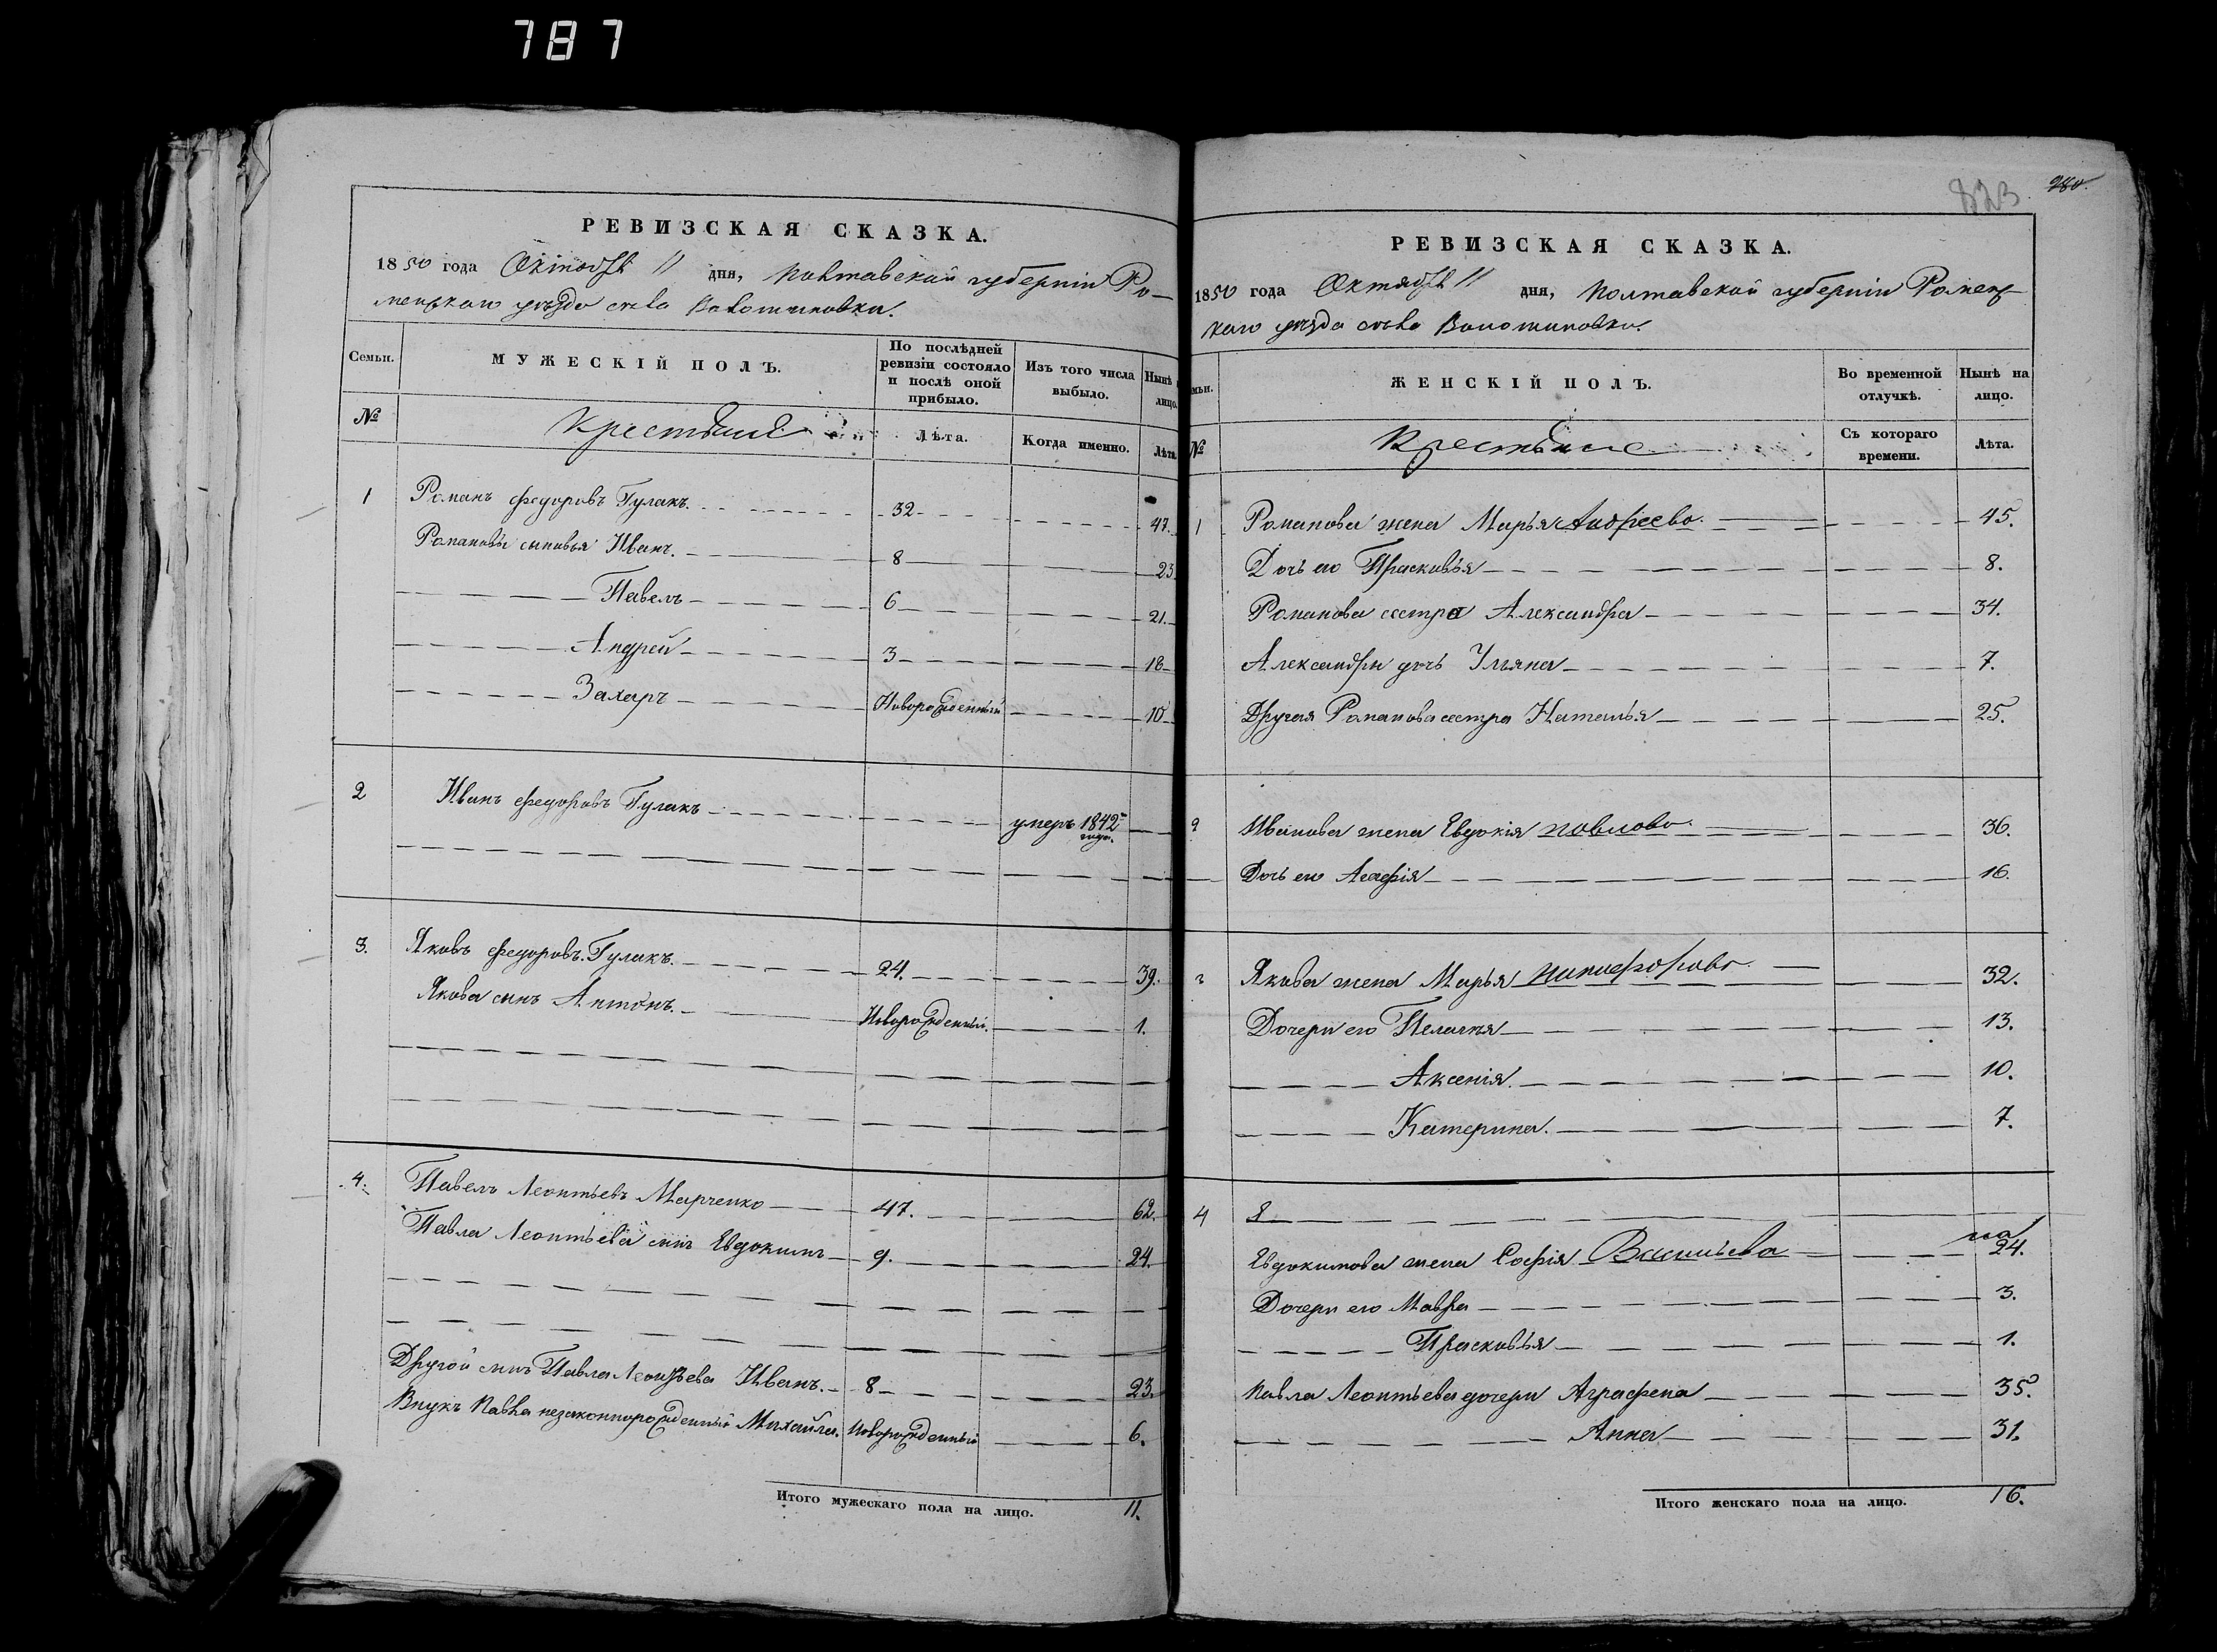 787
РЕВИЗСКАЯ СКАЗКА.
1850 года Октября 11 дня, Полтавской губерніи Ро-
менскаго уѣзда села Волошиновки.
Семьи.
МУЖЕСКІЙ ПОЛЪ.
По послѣдней ревизіи состояло и послѣ оной прибыло.
Изъ того числа выбыло.
Нынѣ лицо.
№
Крестьяне
Лѣта.
Когда именно.
Лѣта.
1 Романъ Федоровъ Гулакъ. 32 47.
Романовы сыновья Иванъ. 8 23
Павелъ 6 21.
Андрей 3 18
Захаръ Новорожденный 10
2 Иванъ Федоровъ Гулакъ умеръ 1842 года.
3. Яковъ Федоровъ Гулакъ. 24. 39.
Якова сынъ Антонъ. Новорожденный. 1.
4. Павелъ Леонтьевъ Марченко 47. 62.
Павла Леонтьева сынъ Евдокимъ 9. 24.
Другой сынъ Павла Леонтьева Иванъ. 8 23.
Внукъ Павла незаконнорожденный Михайла. Новорожденный 6.
Итого мужескаго пола на лицо. 11.
823 280.
РЕВИЗСКАЯ СКАЗКА.
1850 года Октября 11 дня, Полтавской губерніи Роменс-
каго уѣзда села Волошиновки.
мьи.
ЖЕНСКІЙ ПОЛЪ.
Во временной отлучкѣ.
Нынѣ на лицо.
№
Крестьяне
Съ котораго времени.
Лѣта.
1 Романова жена Марья Андреева. 45.
Дочь его Прасковья 8.
Романова сестра Александра 34.
Александры дочь Ульяна 7.
Другая Романова сестра Наталья 25.
2 Иванова жена Евдокія Павлова. 36.
Дочь его Агафія 16.
3 Якова жена Марья Никифорова. 32.
Дочери его Пелагея 13.
Аксенія. 10.
Катерина. 7.
4
Евдокимова жена Софія Васильева 24.
Дочери его Мавра 3.
Прасковья 1.
Павла Леонтьева дочери Аграфена 35.
Анна 31.
Итого женскаго пола на лицо. 16.